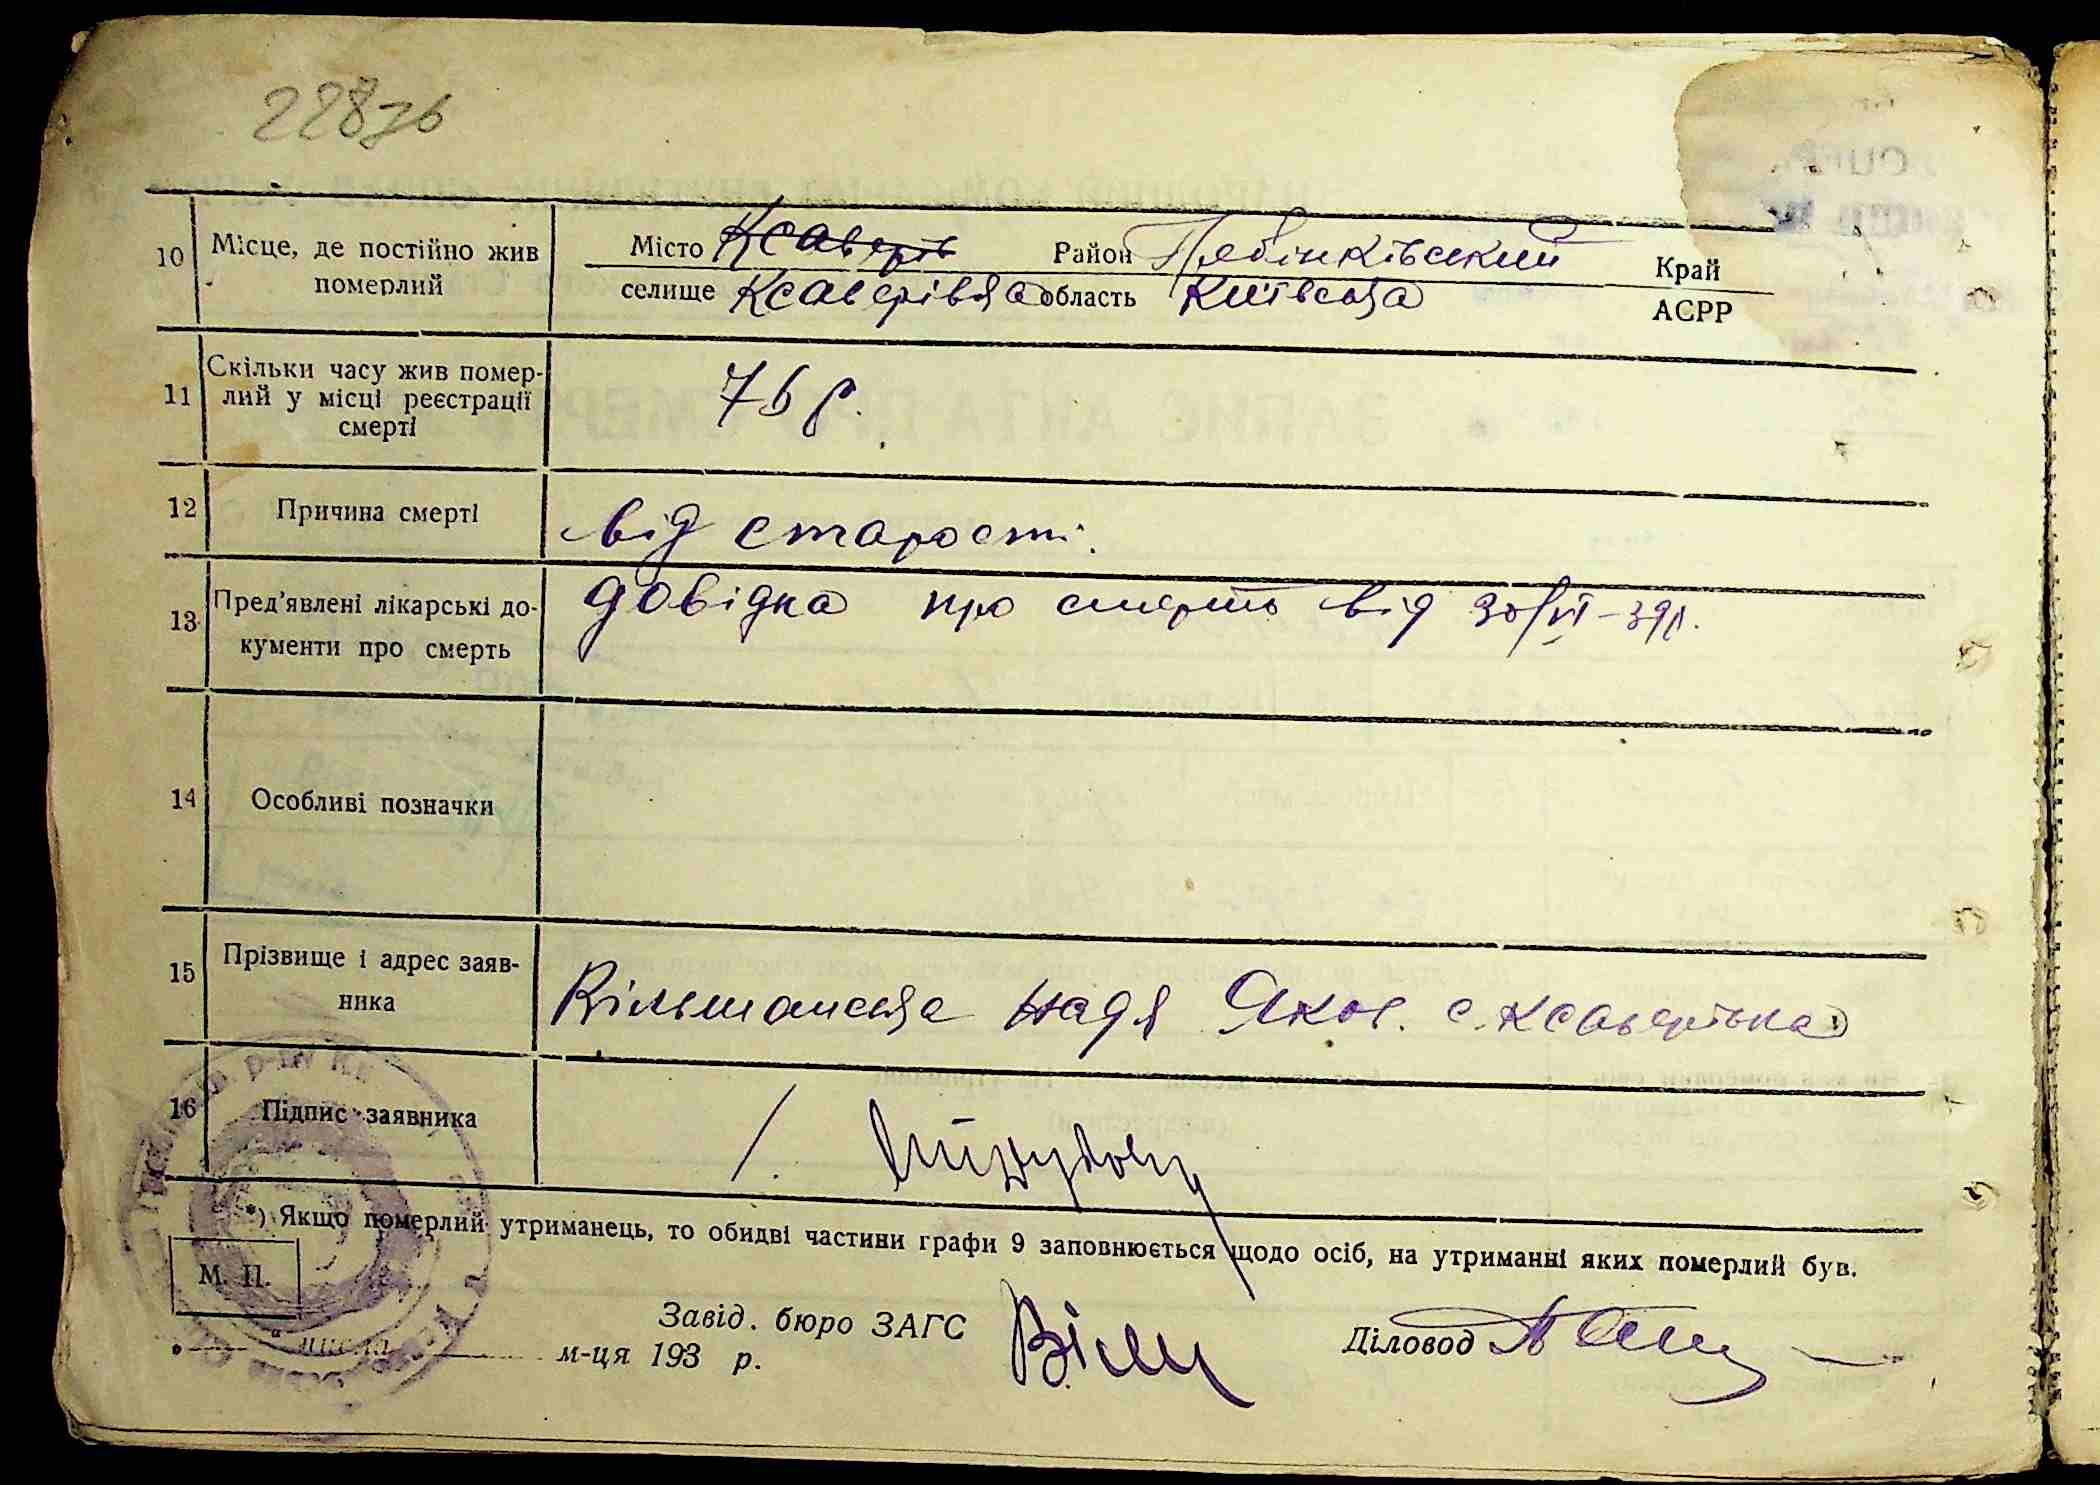 228зв
10 Місце, де постійно жив Місто Ксаверів Район Гребінківський Край
померлий селище Ксаверівка область Київська АСРР
11 Скільки часу жив помер-
лий у місці реєстрації
смерті
76 р.
12 Причина смерті від старості.
13 Пред'явлені лікарські до- довідка про смерть від 30/VI–39р.
кументи про смерть
14 Особливі позначки
15 Прізвище і адрес заяв-
ника
Вільшанська Надя Яков. с. Ксаверівка
16 Підпис заявника
*) Якщо померлий утриманець, то обидві частини графи 9 заповнюється щодо осіб, на утриманні яких померлий був.
М. П.
Завід. бюро ЗАГС Діловод
" числа м-ця 193 р.